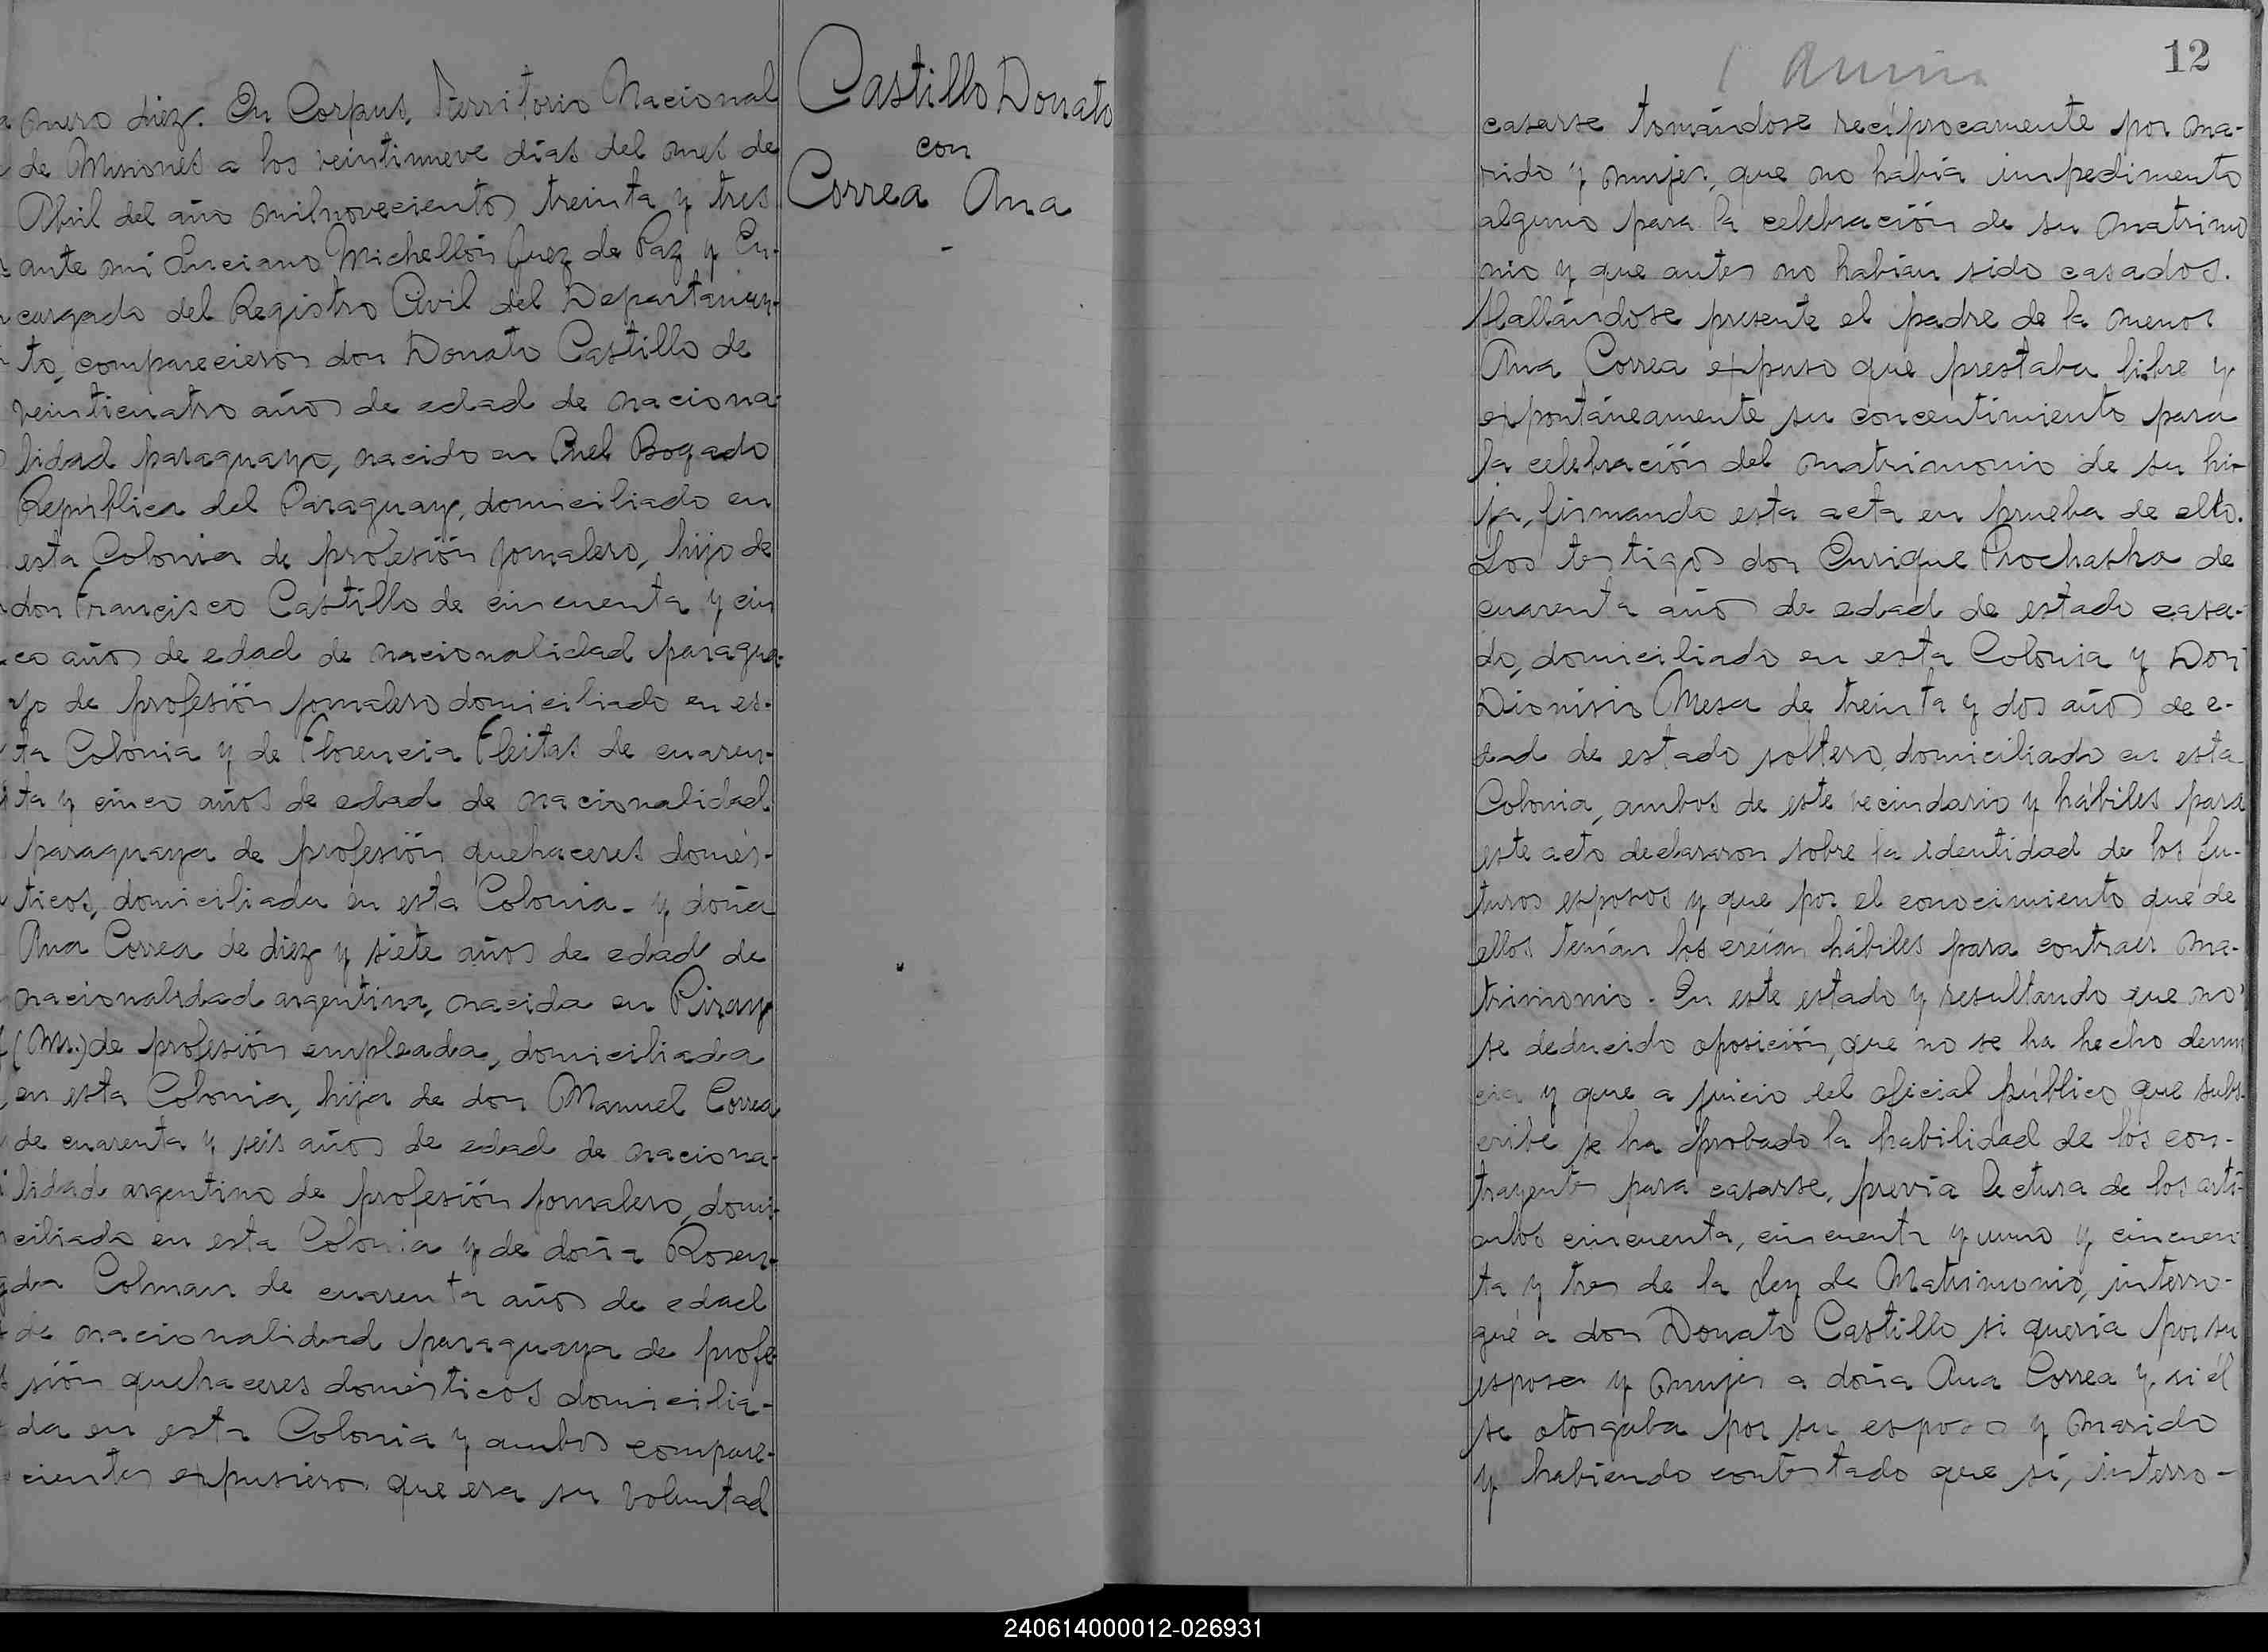 mero diez. En Corpus, Territorio Nacional
de Misiones a los veintinueve días del mes de
Abril del año milnovecientos treinta y tres
ante mí Luciano Michellón Juez de Paz y En-
cargado del Registro Civil del Departamen-
to, comparecieron don Donato Castillo de
veinticuatro años de edad de naciona-
lidad paraguayo, nacido en Cnel Bogado
República del Paraguay, domiciliado en
esta Colonia de profesión jornalero, hijo de
don Francisco Castillo de cincuenta y cin
co años de edad de nacionalidad paragua-
yo de profesión jornalero domiciliado en es-
ta Colonia y de Florencia Fleitas de cuaren-
ta y cinco años de edad de nacionalidad
paraguaya de profesión quehaceres domés-
ticos, domiciliada en esta Colonia - y doña
Ana Correa de diez y siete años de edad de
nacionalidad argentina, nacida en Piray
(Ms.) de profesión empleada, domiciliada
en esta Colonia, hija de don Manuel Correa
de cuarenta y seis años de edad de naciona-
lidad argentino de profesión jornalero, domi-
ciliado en esta Colonia y de doña Rosen-
da Colman de cuarenta años de edad
de nacionalidad paraguaya de profe
sión quehaceres domésticos domicilia-
da en esta Colonia y ambos compare-
cientes expusieron que era su voluntad
Castillo Donato
con
Correa Ana
-
12
casarse tomándose recíprocamente por ma-
rido y mujer, que no había impedimento
alguno para la celebración de su matrimo
nio y que antes no habían sido casados.
Hallándose presente el padre de la menor
Ana Correa expuso que prestaba libre y
expontáneamente su concentimiento para
la celebración del matrimonio de su hi-
ja, firmando esta acta en prueba de ello.
Los testigos don Enrique Prochaska de
cuarenta años de edad de estado casa-
do, domiciliado en esta Colonia y Don
Dionisio Mesa de treinta y dos años de e-
dad de estado soltero, domiciliado en esta
Colonia, ambos de este vecindario y hábiles para
este acto declararon sobre la identidad de los fu-
turos esposos y que por el conocimiento que de
ellos tenían los creían hábiles para contraer ma-
trimonio. En este estado y resultando que no
se deducido oposición, que no se ha hecho denun
cia y que a juicio del oficial público que subs-
cribe se ha probado la habilidad de los con-
trayentes para casarse, previa lectura de los artí-
culos cincuenta, cincuenta y uno y cincuen
ta y tres de la Ley de Matrimonio, interro-
gué a don Donato Castillo si quería por su
esposa y mujer a doña Ana Correa y si él
se otorgaba por su esposo y marido
y habiendo contestado que sí, interro-
240614000012-026931